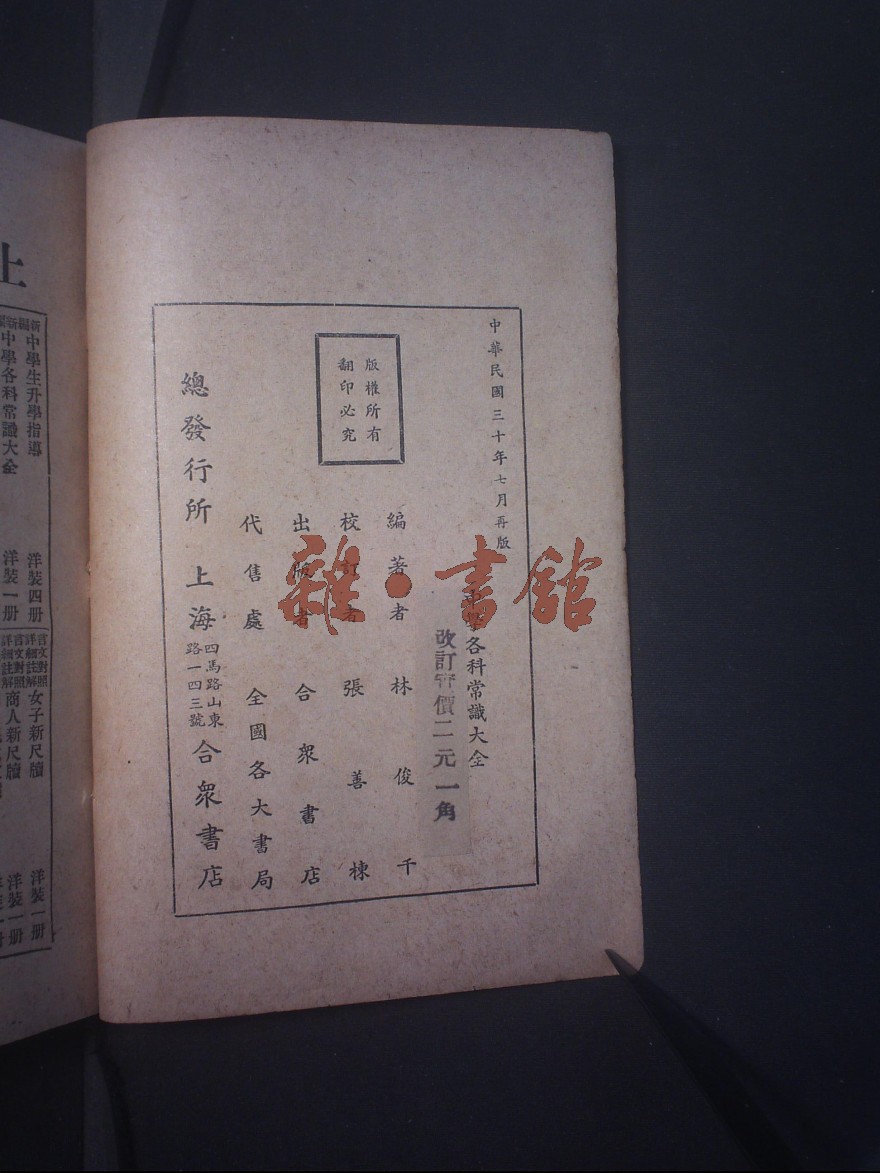 中華民國三十年七月再版
中學各科常識大全
改訂實價二元一角
編著者 林俊千
版權所有
翻印必究
校訂者 張善棟
出版者 合衆書店
代售處 全國各大書局
總發行所 上海 四馬路山東路一四三號 合衆書店
雜·書舘
上
新編 中學生升學指導 洋裝四册
新編 中學各科常識大全 洋裝一册
言文對照 詳細註解 女子新尺牘 洋裝一册
言文對照 詳細註解 商人新尺牘 洋裝一册